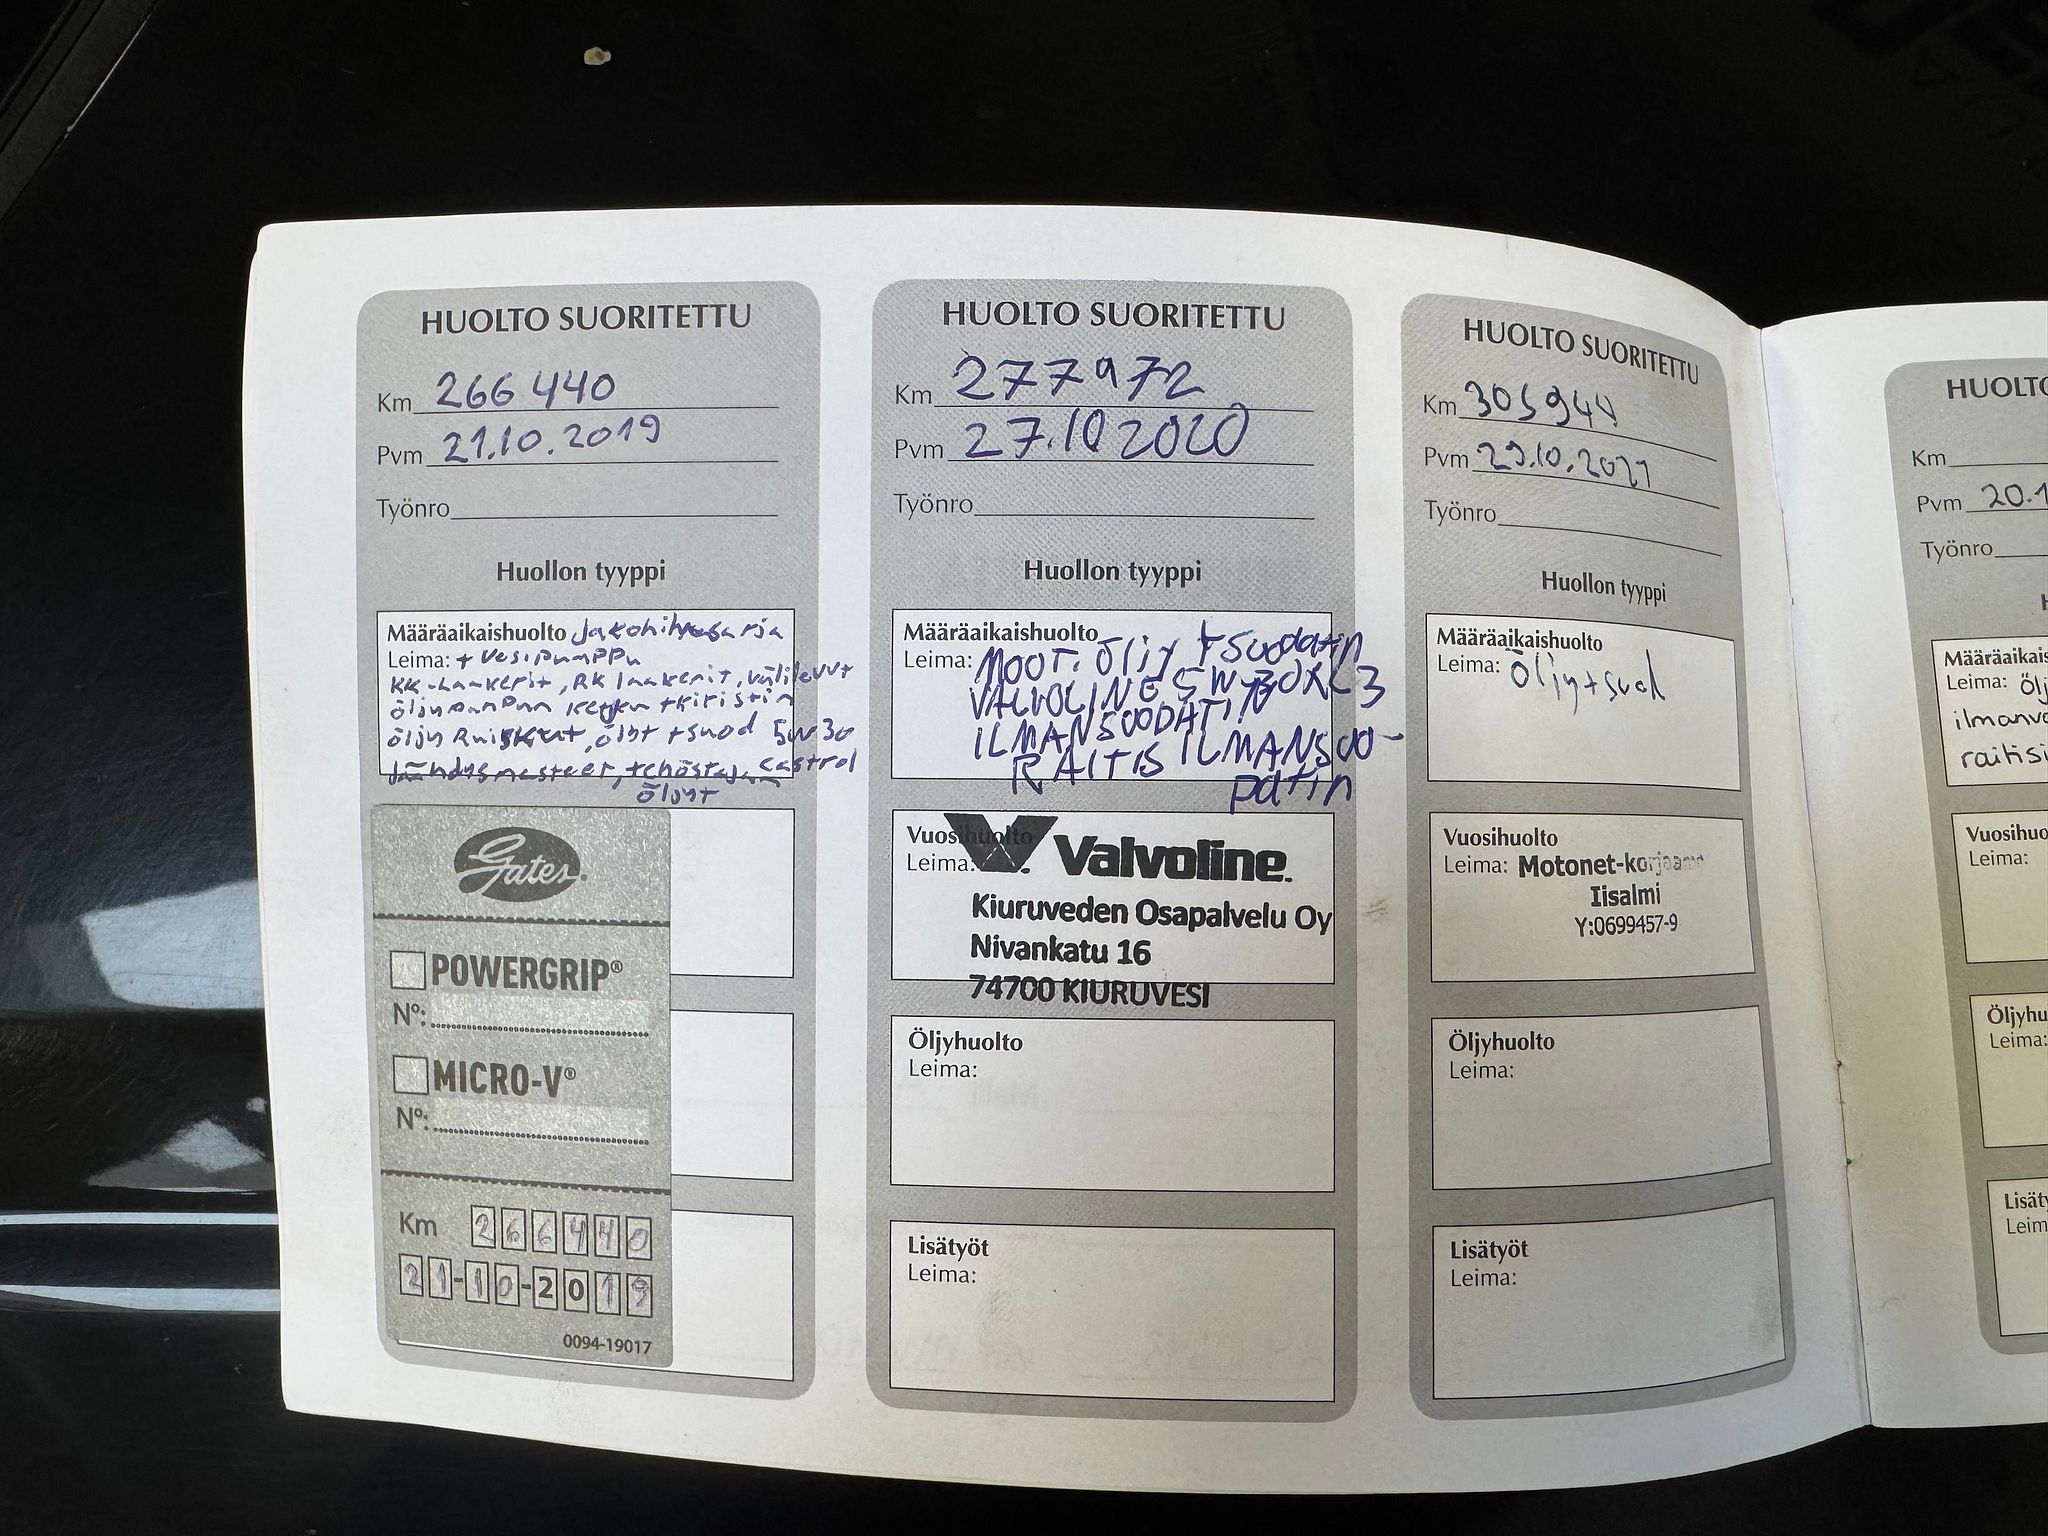 HUOLTO SUORITETTU
Km 266 440
Pvm 21.10.2019
Työnro
Huollon tyyppi
Määräaikaishuolto Jakohihnasarja
Leima: + vesipumppu
KK-Laakerit, RK laakerit, välilevyt
öljypumpun ketju + kiristin
öljy Ruiskut, öljyt + suod 5w30
Jäähdysnesteet, tehostajan castrol
öljyt
Gates
POWERGRIP®
Nº:
MICRO-V®
Nº:
Km 266440
21-10-2019
0094-19017
HUOLTO SUORITETTU
Km 277972
Pvm 27.10 2020
Työnro
Huollon tyyppi
Määräaikaishuolto
Leima: MOOT. ÖljY + suodatin
VALVOLINE 5W30XL3
ILMANSUODATIN
RAITIS ILMANSUO-
DATIN
Vuosihuolto
Leima: Valvoline.
Kiuruveden Osapalvelu Oy
Nivankatu 16
74700 KIURUVESI
Öljyhuolto
Leima:
Lisätyöt
Leima:
HUOLTO SUORITETTU
Km 305944
Pvm 29.10.2021
Työnro
Huollon tyyppi
Määräaikaishuolto
Leima: Öljy+suod
Vuosihuolto
Leima: Motonet-korjaamo
Iisalmi
Y:0699457-9
Öljyhuolto
Leima:
Lisätyöt
Leima:
HUOLTO
Km
Pvm 20.1
Työnro
Määräaikais
Leima: Öl
ilmanv
raitisi
Vuosihuo
Leima:
Öljyhu
Leima:
Lisäty
Leim